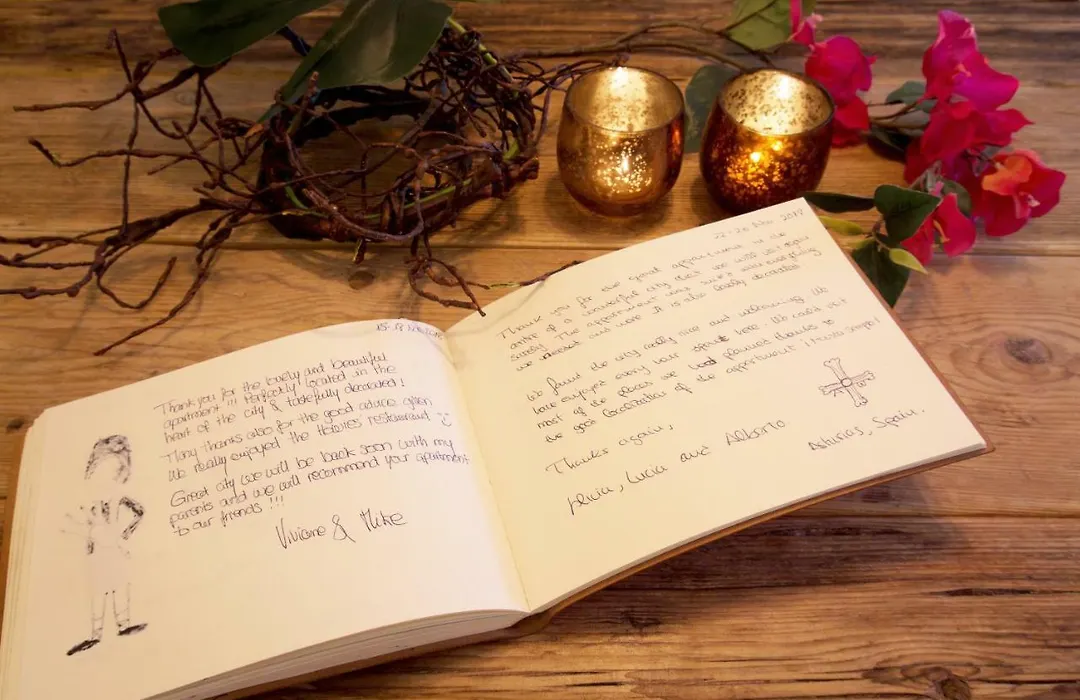 15-18 Nov
Thank you for the lovely and beautiful
apartment!!! Perfectly located in the
heart of the city & tastefully decorated!
Many thanks also for the good advice given
We really enjoyed the restaurant :)
Great city we will be back soon with my
parents and we will recommend your apartment
to our friends!!!
Viviane & Mike
Nov
Thank you for the great appartment in the
centre of a wonderful city that we will visit again
surely. The appartment was with everything
we needed and more. It is also lovely decorated
We found the city really nice and welcoming. We
have enjoyed every hour spent here. We could visit
most of the places we had planned thanks to
the good localization of the appartment
Thanks again,
Alicia, Lucía and Alberto
Asturias, Spain.